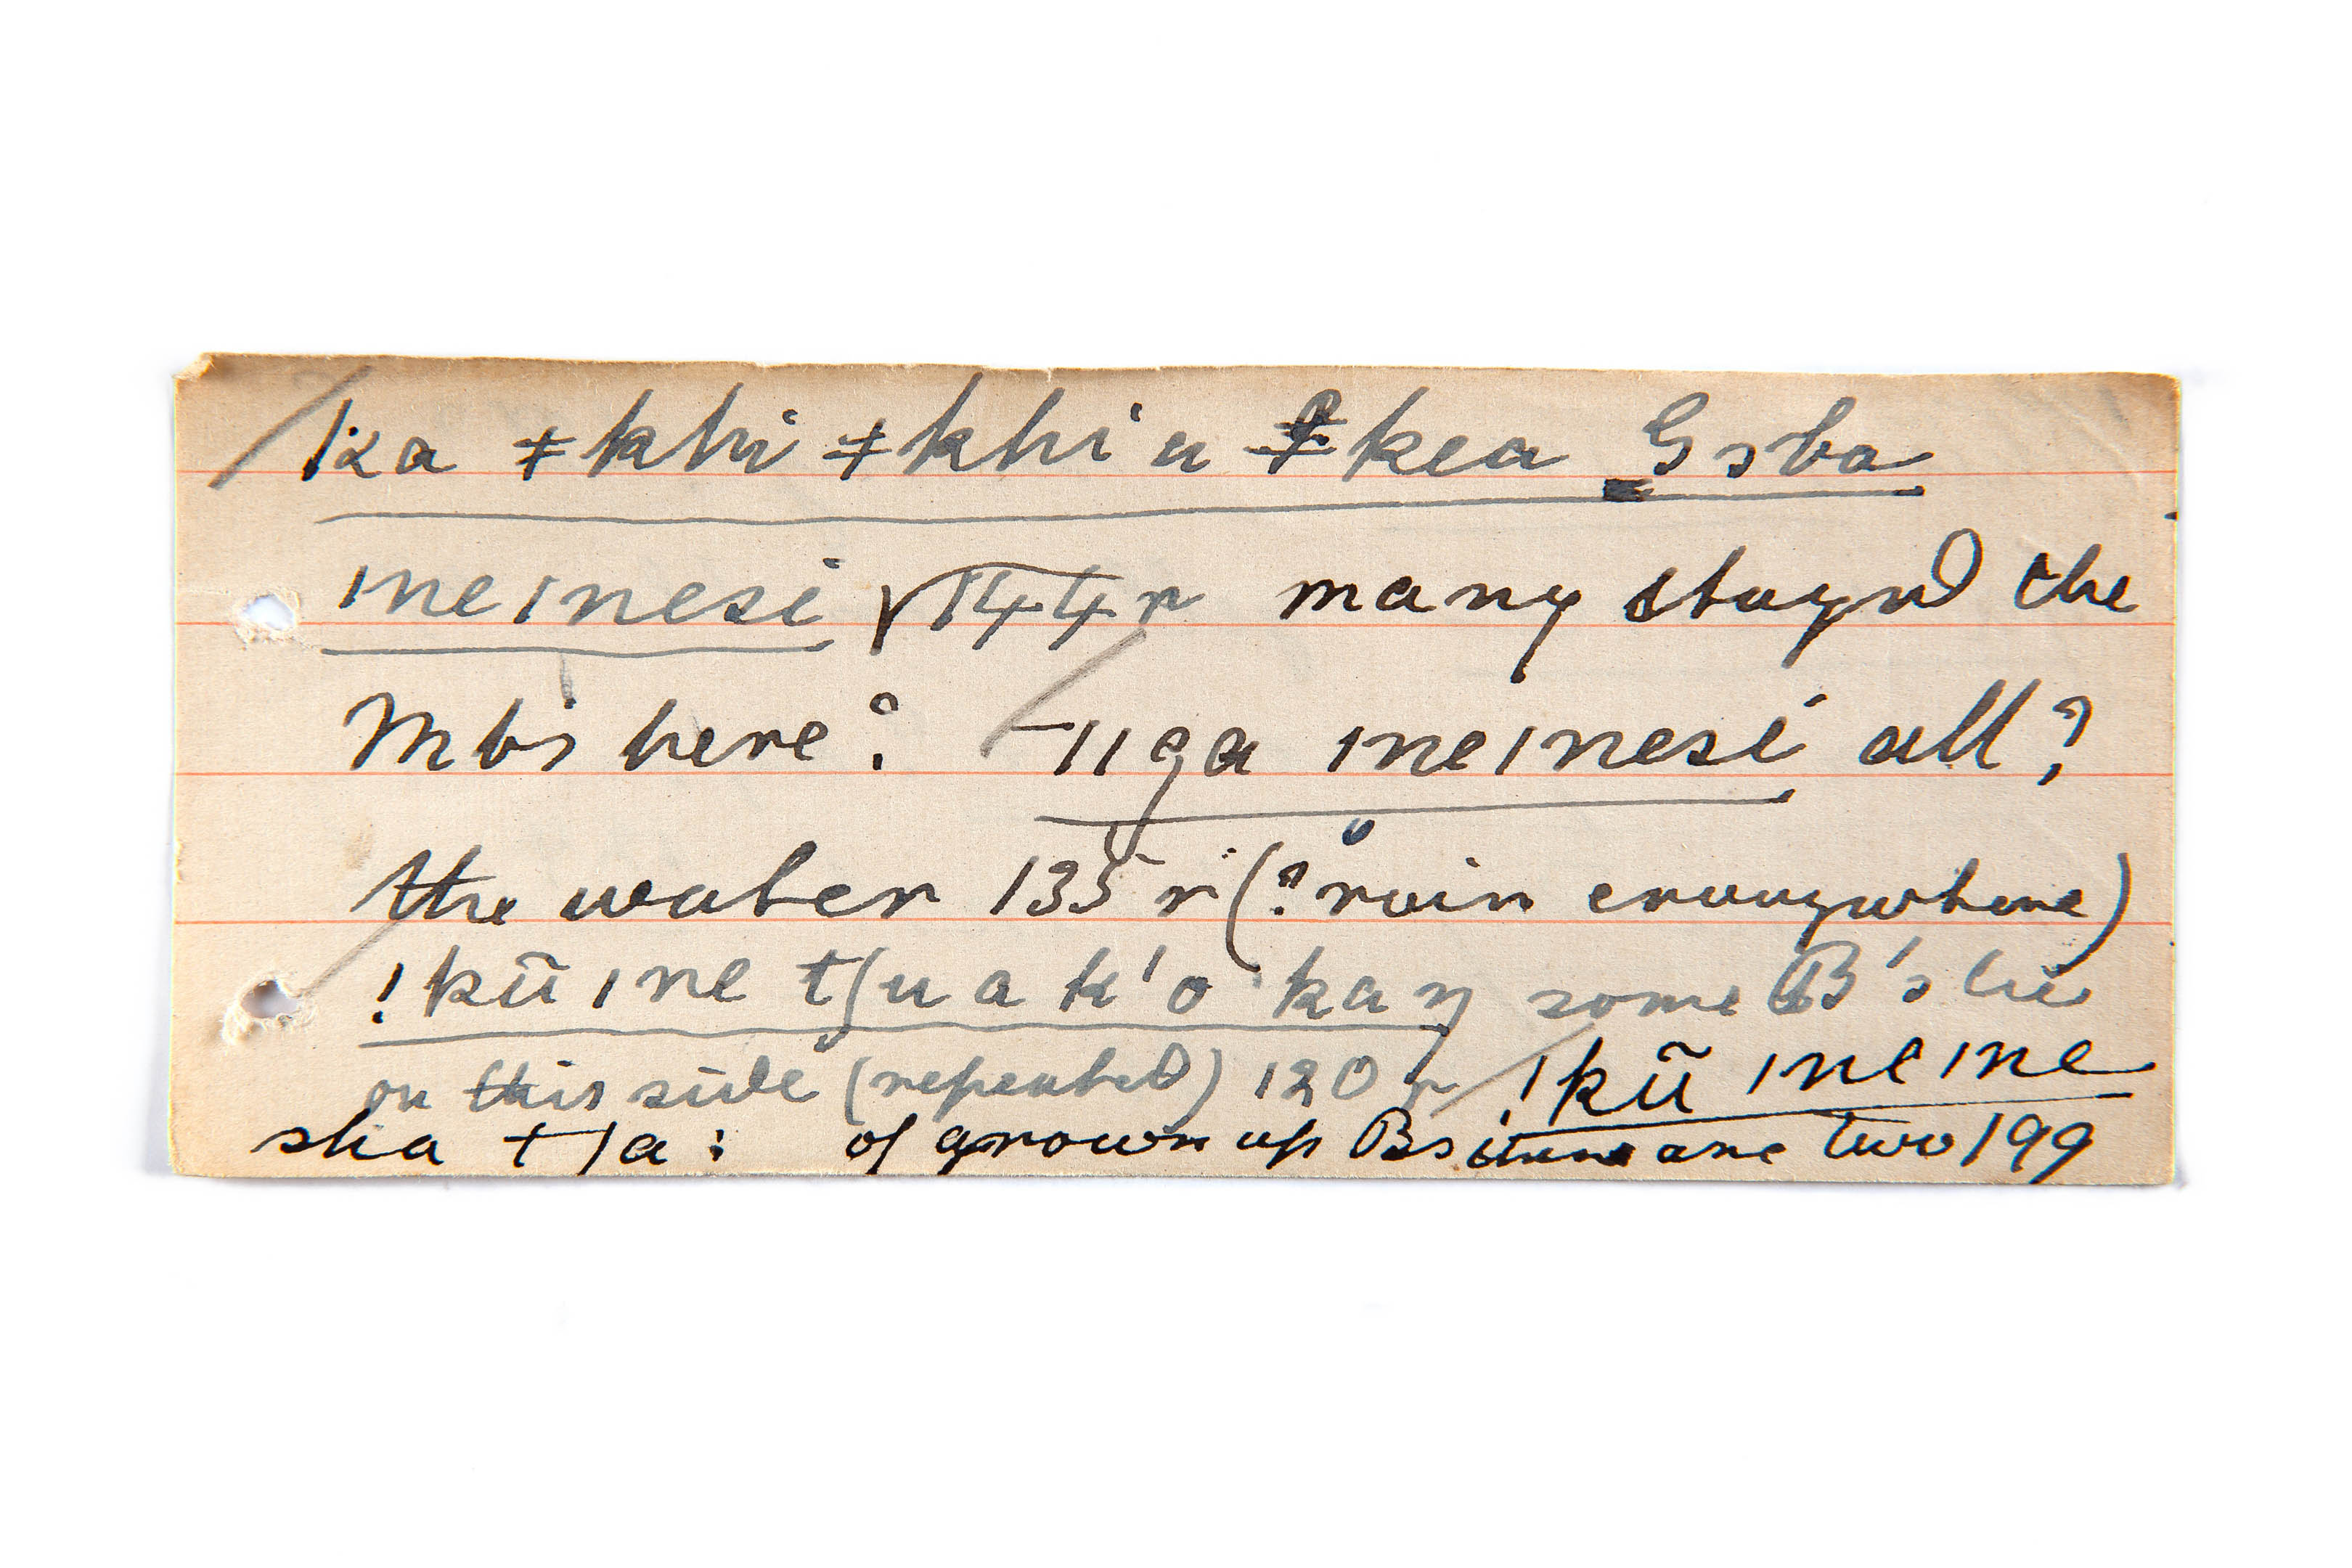 ka ǂkhi ǂkhi u ǂkea Goba
ıneınesi √144r many stayed the
Mbs here? ǁga ıneınesi all?
the water 135r (? rain everywhere)
!kũ ıne tʃu a k'o kaŋ some B's lie
on this side (repeated) 120 r !kũ ıneıne
sha tǀa: of grown up Bs there are two 199